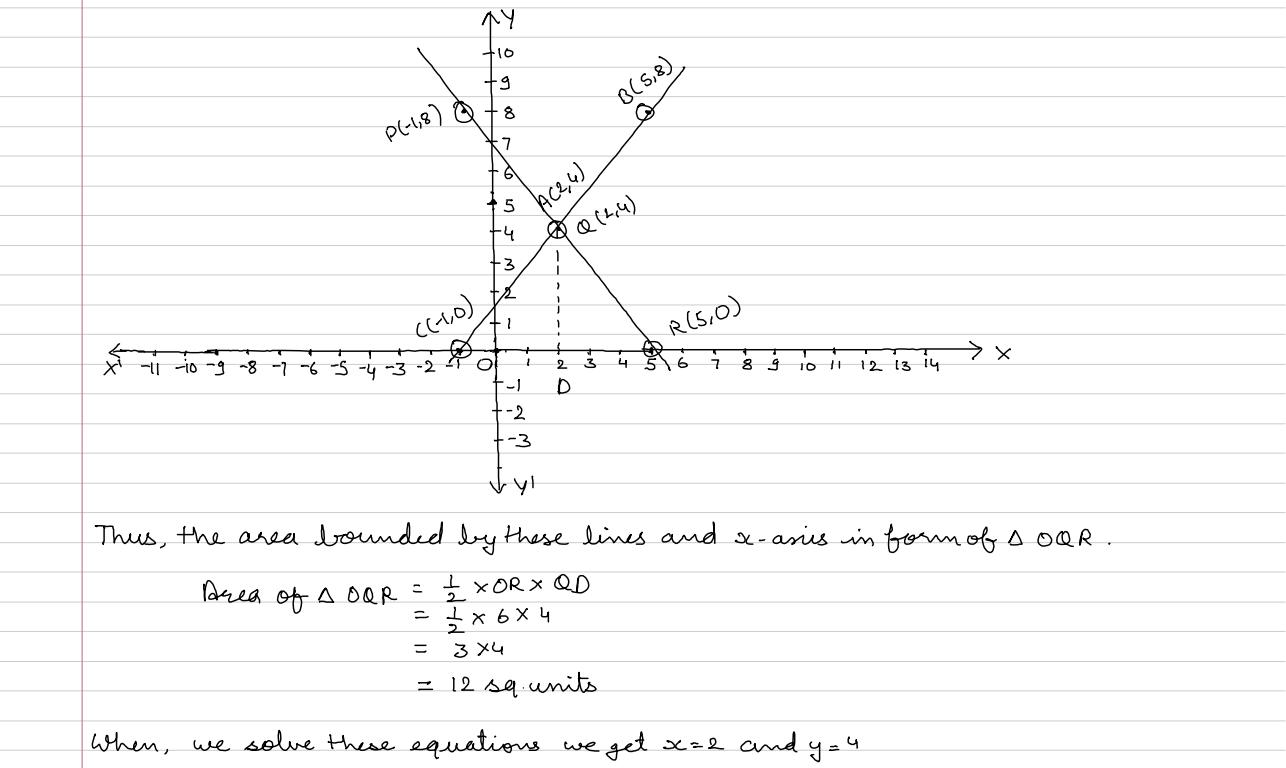 Y
10
9
B(5,8)
P(-1,8)
8
7
6
A(2,4)
5
Q(2,4)
4
3
2
C(-1,0)
R(5,0)
1
X' -11 -10 -9 -8 -7 -6 -5 -4 -3 -2 -1 0 1 2 3 4 5 6 7 8 9 10 11 12 13 14 X
D
-1
-2
-3
Y'
Thus, the area bounded by these lines and x-axis in form of Δ OQR.
Area of Δ OQR = 1/2 × OR × QD
= 1/2 × 6 × 4
= 3 × 4
= 12 sq. units
When, we solve these equations we get x=2 and y=4